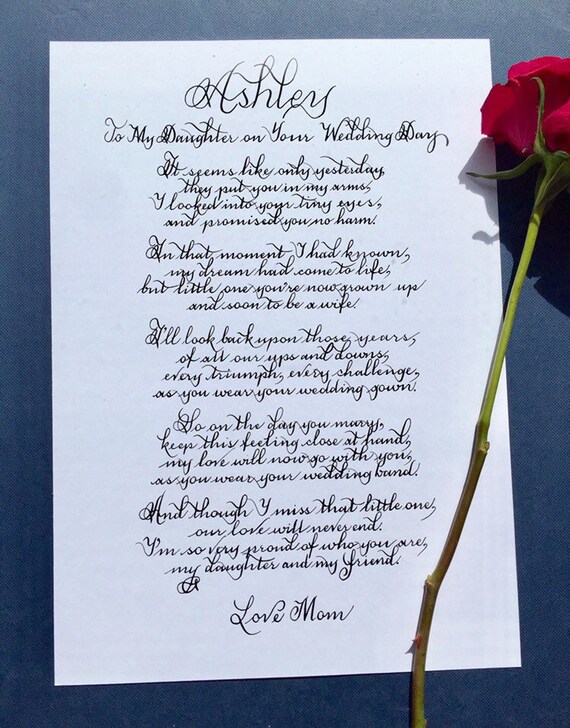 Ashley
To My Daughter on Your Wedding Day
It seems like only yesterday,
they put you in my arms,
I looked into your tiny eyes,
and promised you no harm.
In that moment I had known,
my dream had come to life,
but little one you're now grown up
and soon to be a wife.
I'll look back upon those years,
of all our ups and downs,
every triumph, every challenge,
as you wear your wedding gown.
So on the day you marry,
keep this feeling close at hand,
my love will now go with you,
as you wear your wedding band.
And though I miss that little one,
our love will never end.
I'm so very proud of who you are,
my daughter and my friend.
Love Mom